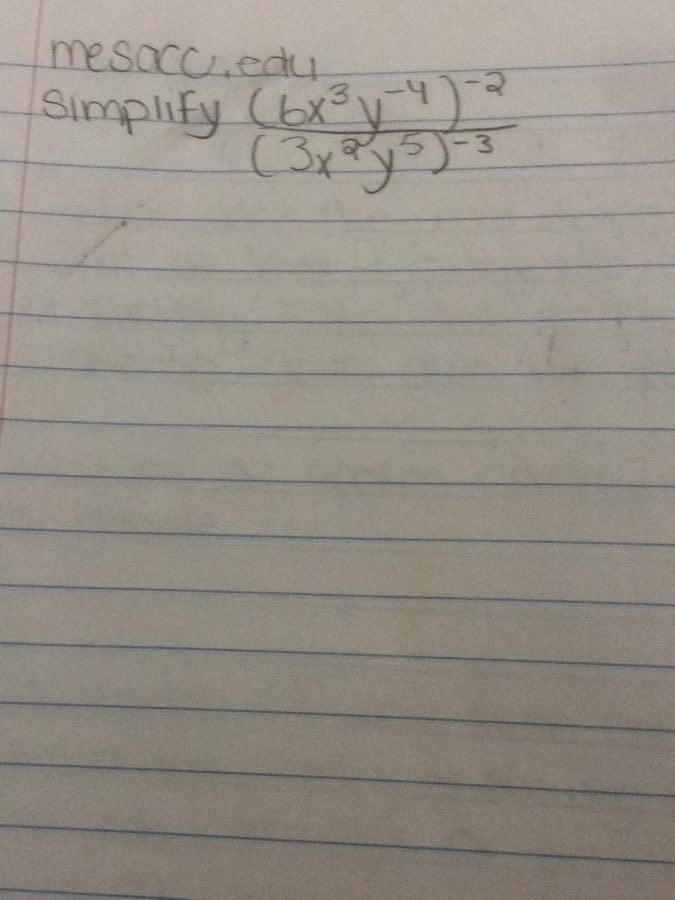 mesacc.edu
Simplify (6x³y⁻⁴)⁻²
(3x²y⁵)⁻³